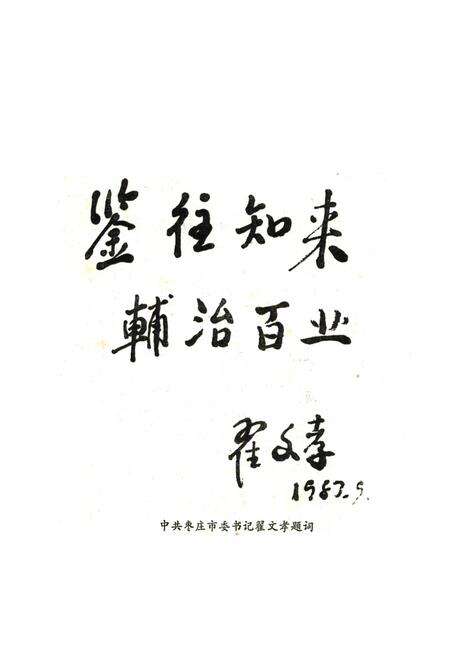 鉴往知来
輔治百业
翟文孝
1987.9.
中共枣庄市委书记翟文孝题词